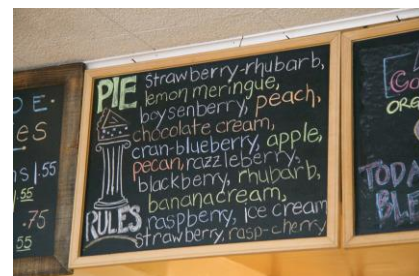 PIE
strawberry-rhubarb,
lemon meringue,
boysenberry, peach,
chocolate cream,
cran-blueberry, apple,
pecan, razzleberry,
blackberry, rhubarb,
banana cream,
raspberry, ice cream
strawberry, rasp-cherry
RULES
1.55
1.55
.75
.55
TODA